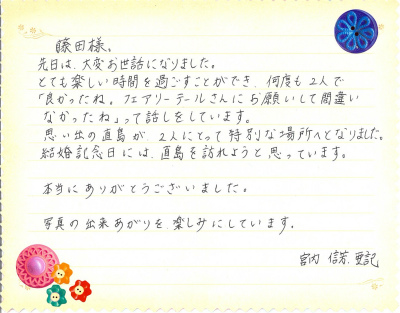 藤田様、
先日は、大変お世話になりました。
とても楽しい時間を過ごすことができ、何度も2人で
「良かったね。フェアリーテールさんにお願いして間違い
なかったね」って話しをしています。
思い出の直島が、2人にとって特別な場所へとなりました。
結婚記念日には、直島を訪れようと思っています。
本当にありがとうございました。
写真の出来あがりを楽しみにしています。
宮内 信芳 亜記